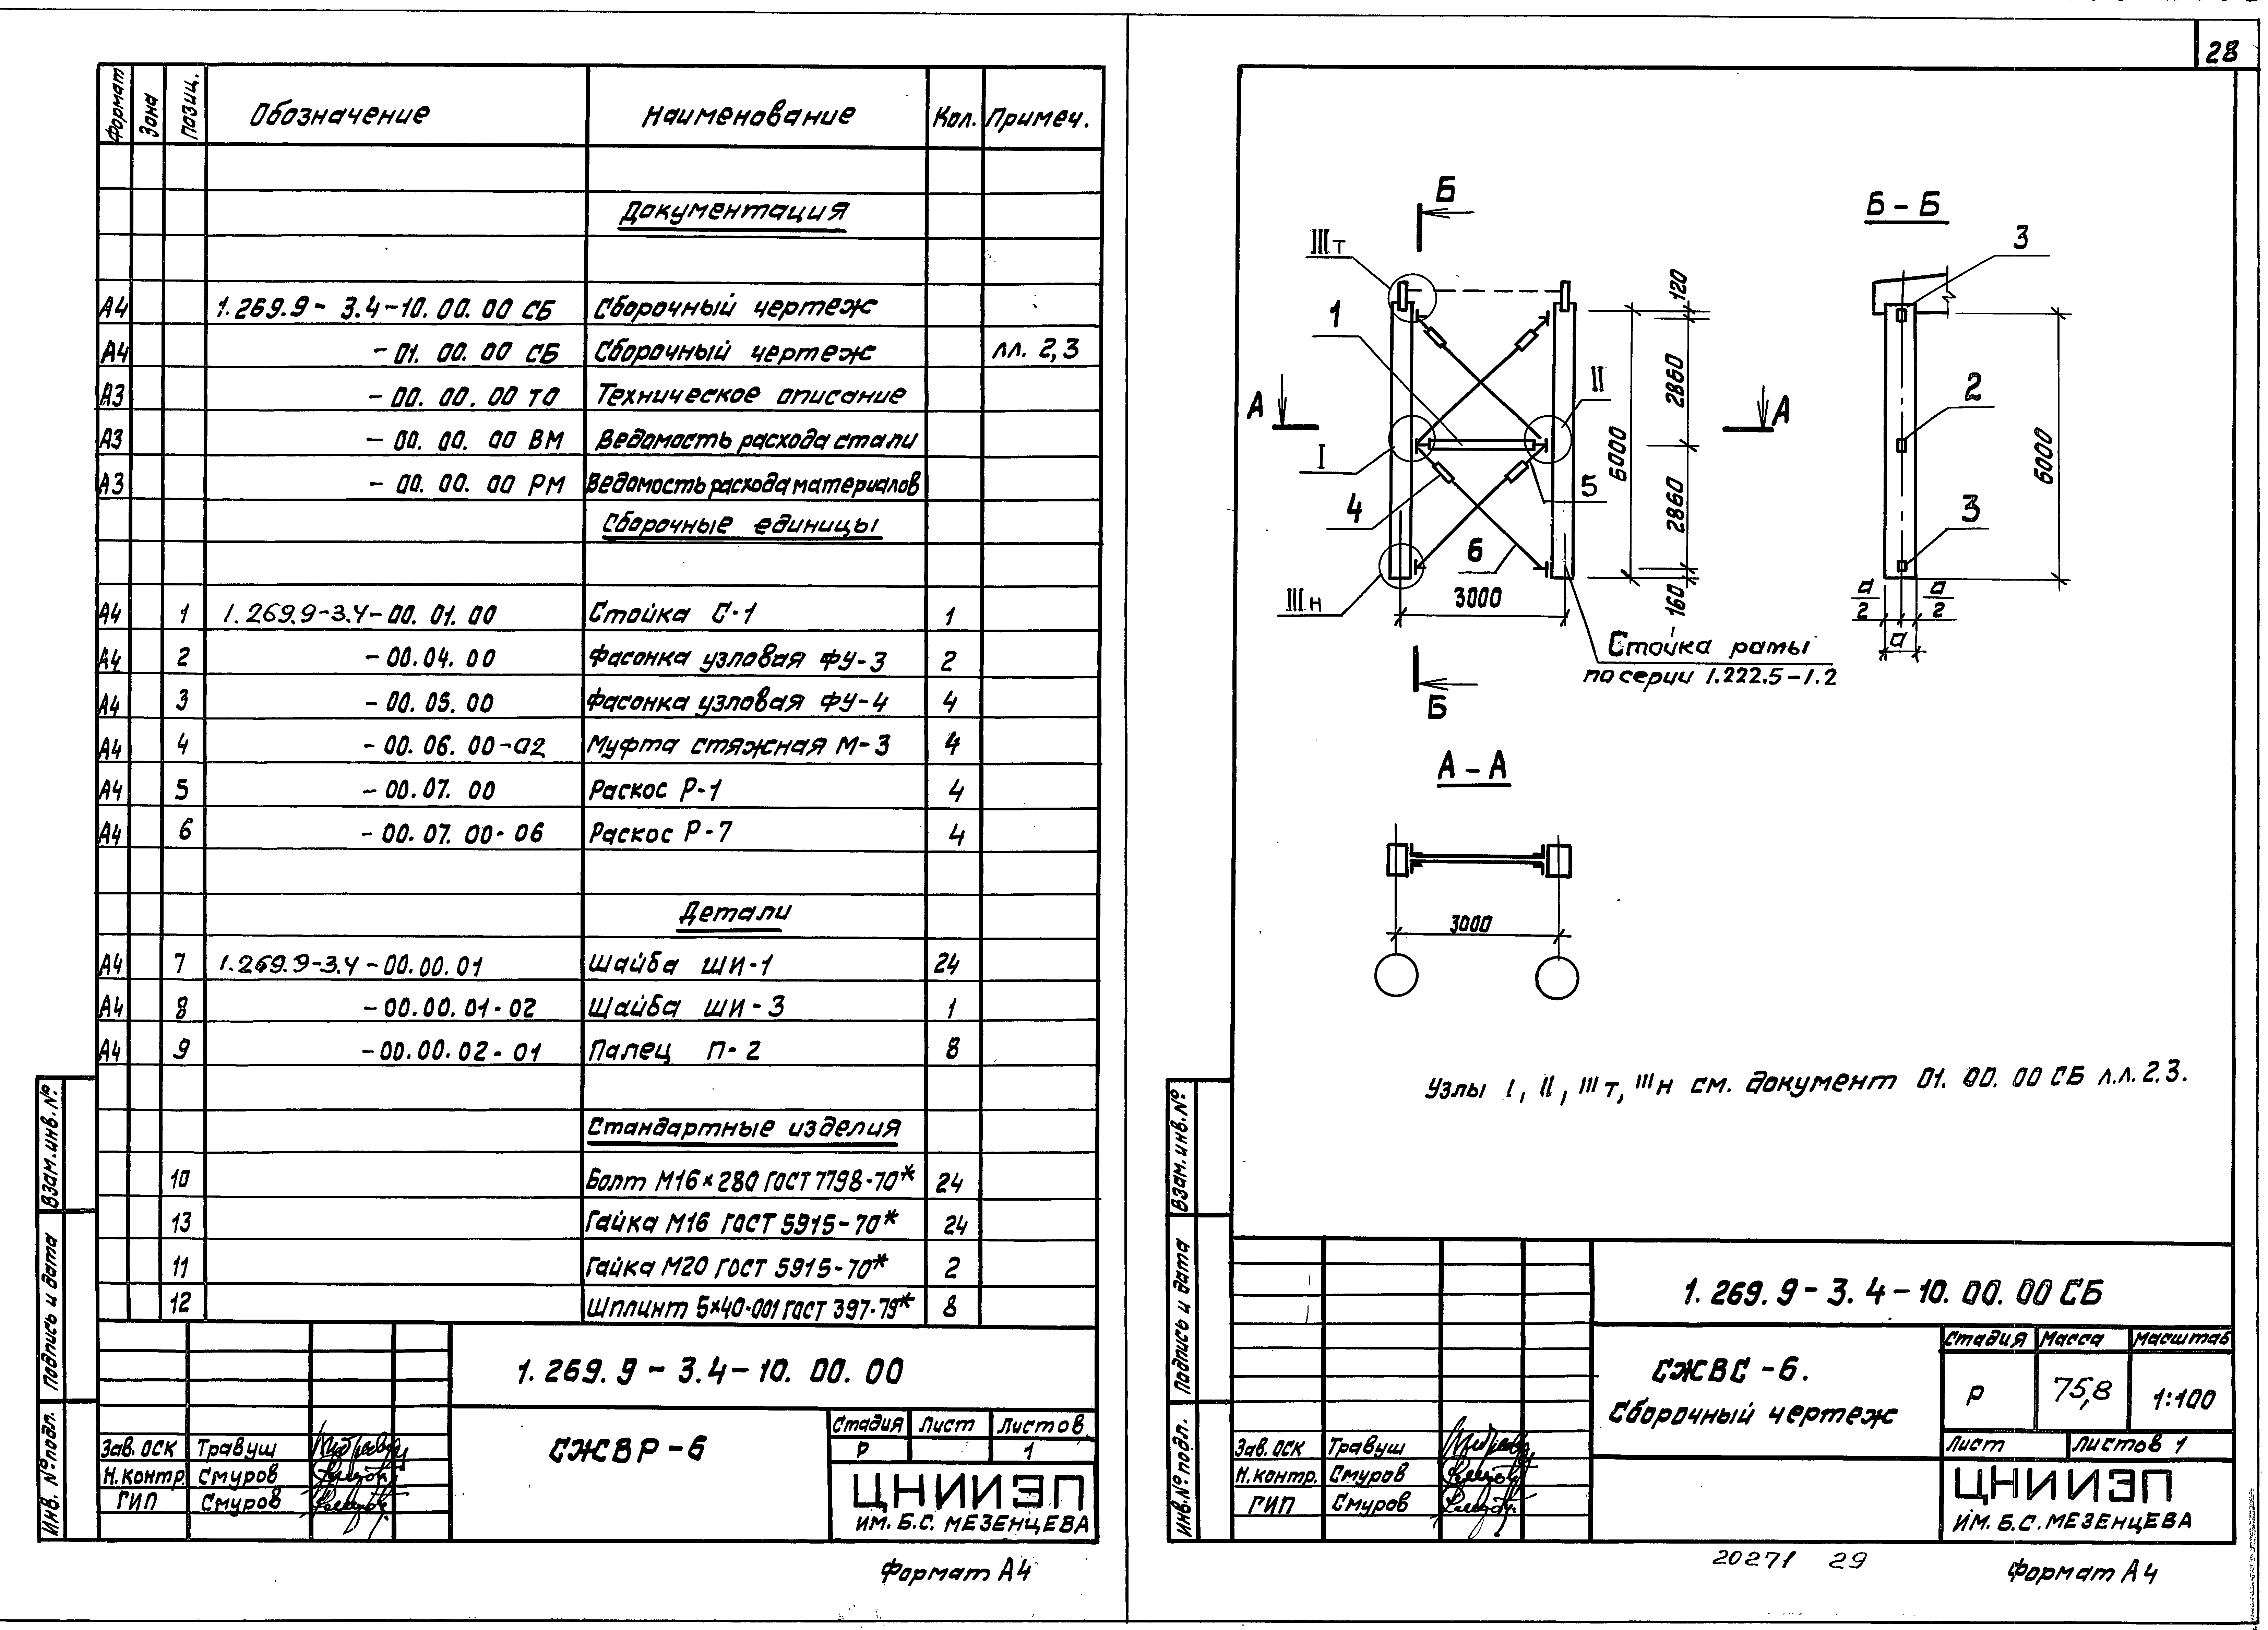 28
Формат Зона Позиц. Обозначение Наименование Кол. Примеч.
Документация
А4 1.269.9-3.4-10.00.00 СБ Сборочный чертеж
А4 -01.00.00 СБ Сборочный чертеж лл. 2,3
А3 -00.00.00 ТО Техническое описание
А3 -00.00.00 ВМ Ведомость расхода стали
А3 -00.00.00 РМ Ведомость расхода материалов
Сборочные единицы
А4 1 1.269.9-3.4-00.01.00 Стойка С-1 1
А4 2 -00.04.00 Фасонка узловая ФУ-3 2
А4 3 -00.05.00 Фасонка узловая ФУ-4 4
А4 4 -00.06.00-02 Муфта стяжная М-3 4
А4 5 -00.07.00 Раскос Р-1 4
А4 6 -00.07.00-06 Раскос Р-7 4
Детали
А4 7 1.269.9-3.4-00.00.01 Шайба ШИ-1 24
А4 8 -00.00.01-02 Шайба ШИ-3 1
А4 9 -00.00.02-01 Палец П-2 8
Стандартные изделия
10 Болт М16×280 ГОСТ 7798-70* 24
13 Гайка М16 ГОСТ 5915-70* 24
11 Гайка М20 ГОСТ 5915-70* 2
12 Шплинт 5×40-001 ГОСТ 397-79* 8
Взам. инв. №
Подпись и дата
Инв. № подл.
1.269.9-3.4-10.00.00
СЖВР-6
Стадия Лист Листов
Р 1
Зав. ОСК Травуш
Н.контр. Смуров
ГИП Смуров
ЦНИИЭП
ИМ. Б.С. МЕЗЕНЦЕВА
Формат А4
Б
IIIт
1
А
II
А
I
5
4
6
IIIн
3000
6000
120
2860
2860
160
Стойка рамы
по серии 1.222.5-1.2
Б
Б-Б
3
2
3
6000
а/2 а/2
а
А-А
3000
Узлы I, II, IIIт, IIIн см. документ 01.00.00 СБ л.л. 2.3.
Взам. инв. №
Подпись и дата
Инв. № подл.
1.269.9-3.4-10.00.00 СБ
СЖВС-6.
Сборочный чертеж
Стадия Масса Масштаб
Р 75,8 1:100
Лист Листов 1
Зав. ОСК Травуш
Н.контр. Смуров
ГИП Смуров
ЦНИИЭП
ИМ. Б.С. МЕЗЕНЦЕВА
20271 29
Формат А4